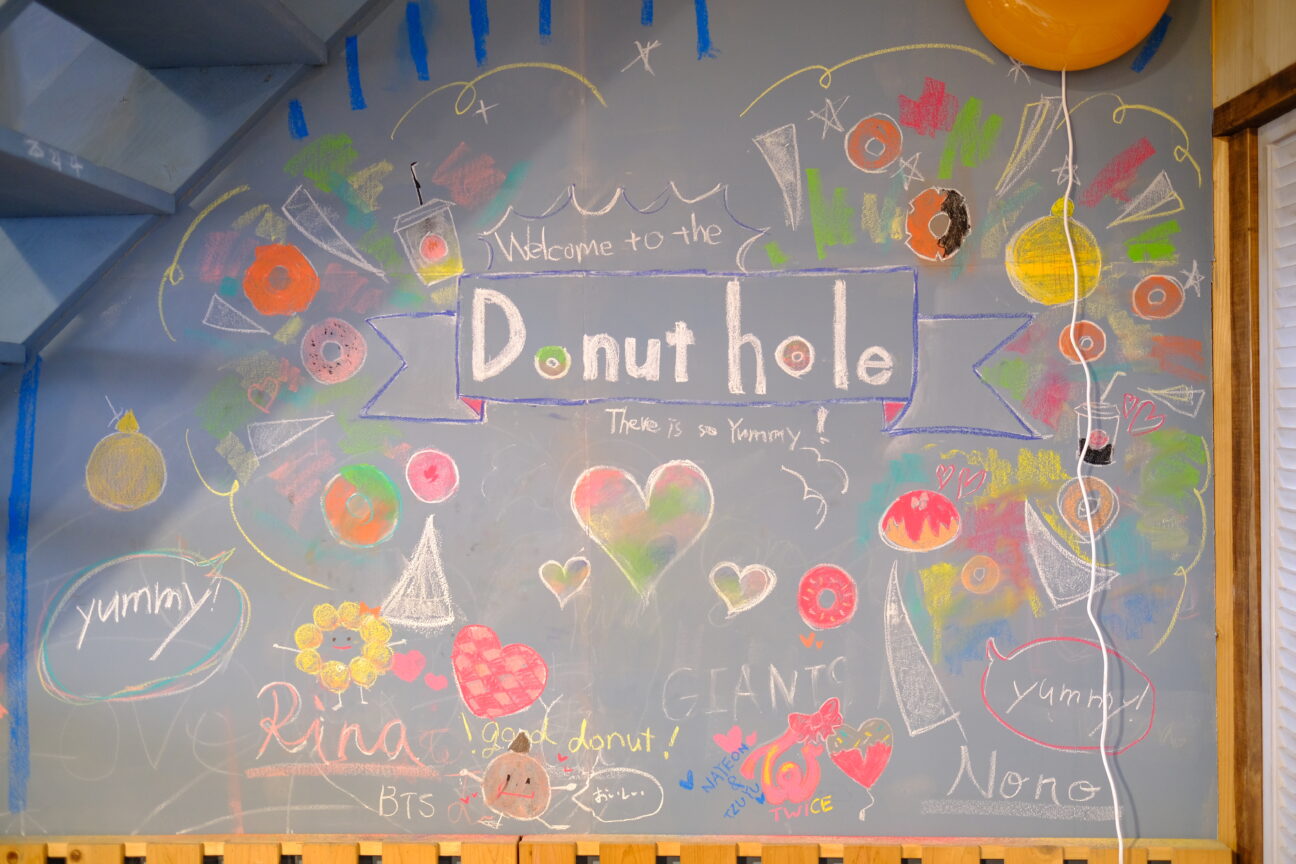 344
Welcome to the
Donut hole
There is so Yummy!
yummy!
GIANTS
yummy!
Rina
! good donut!
NAYEON
&
TZUYU
Nono
BTS
おいしい
TWICE